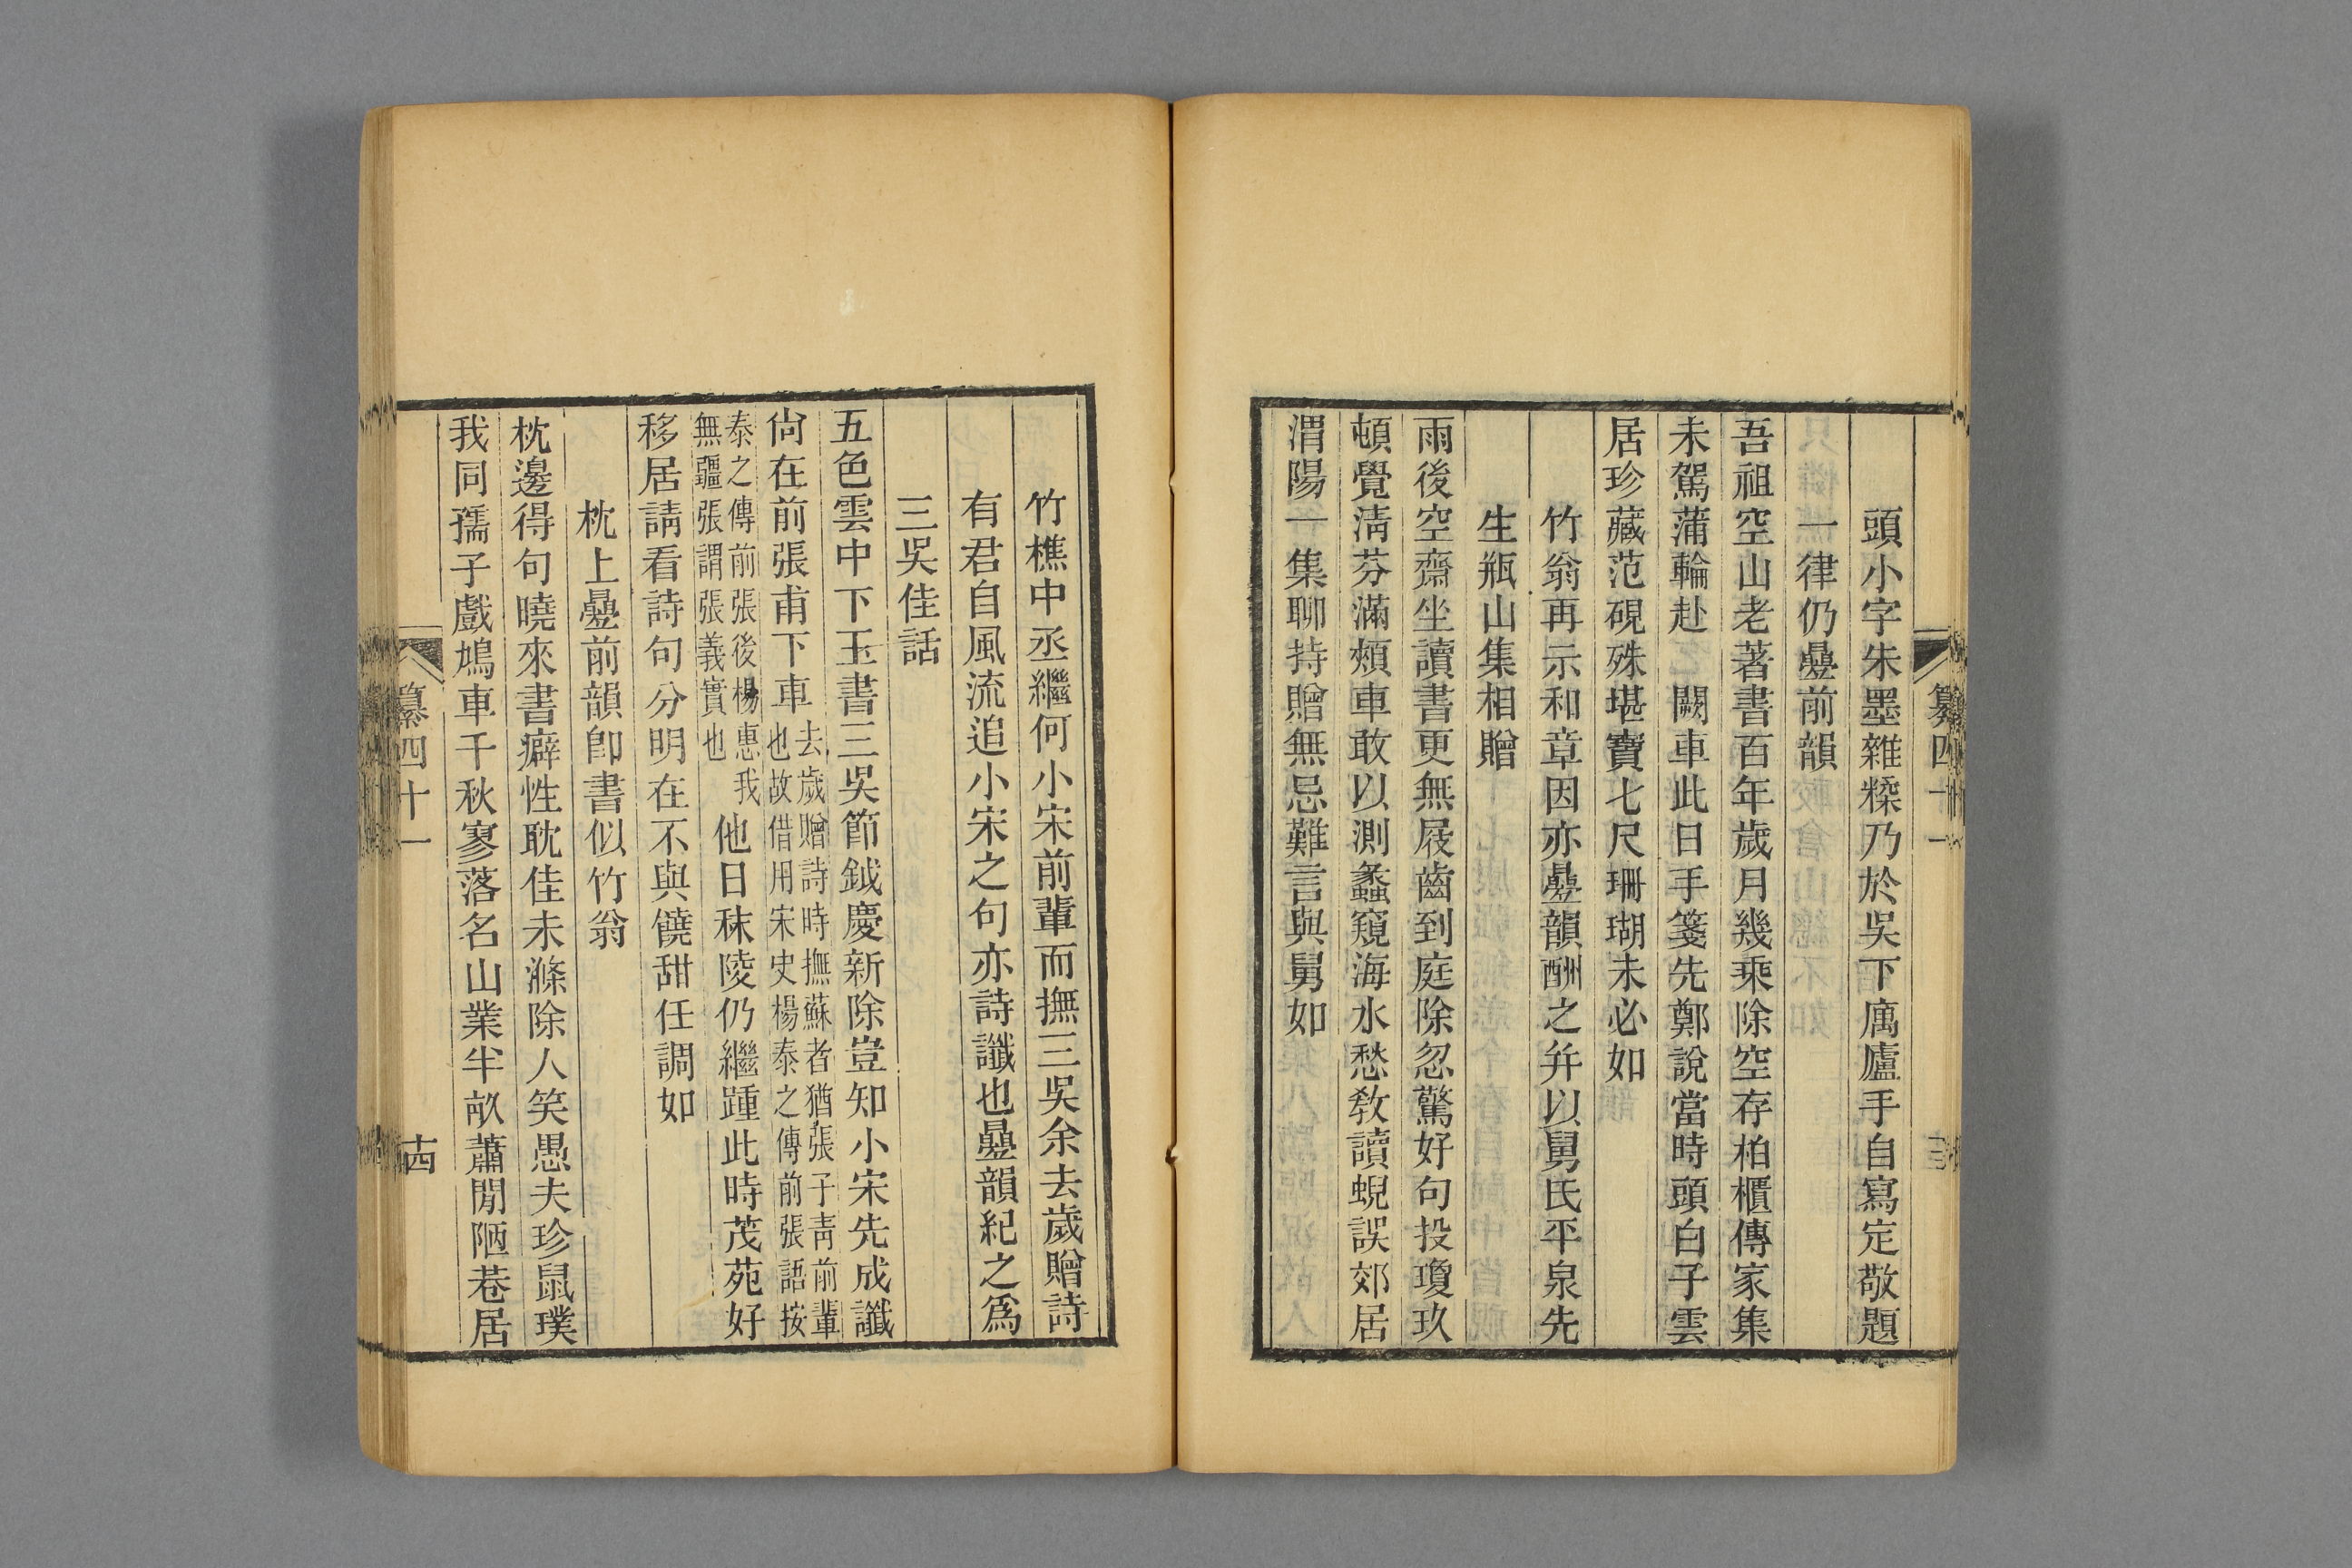 頭小字朱墨雜糅乃於吳下寓廬手自寫定敬題
一律仍疊前韻
吾祖空山老著書百年歲月幾乘除空存柏櫃傳家集
未駕蒲輪赴 闕車此日手箋先鄭說當時頭白子雲
居珍藏范硯殊堪寶七尺珊瑚未必如
竹翁再示和章因亦疊韻酬之并以舅氏平泉先
生瓶山集相贈
雨後空齋坐讀書更無屐齒到庭除忽驚好句投瓊玖
頓覺淸芬滿頰車敢以測蠡窺海水愁敎讀蜺誤郊居
渭陽一集聊持贈無忌難言與舅如
纂四十一
竹樵中丞繼何小宋前輩而撫三吳余去歲贈詩
有君自風流追小宋之句亦詩讖也疊韻紀之爲
三吳佳話
五色雲中下玉書三吳節鉞慶新除豈知小宋先成讖
尙在前張甫下車去歲贈詩時撫蘇者猶張子靑前輩
也故借用宋史楊泰之傳前張語按
泰之傳前張後楊惠我
無疆張謂張義實也
他日秣陵仍繼踵此時茂苑好
移居請看詩句分明在不與饒甜任調如
枕上疊前韻卽書似竹翁
枕邊得句曉來書癖性耽佳未滌除人笑愚夫珍鼠璞
我同孺子戲鳩車千秋寥落名山業半畝蕭閒陋巷居
纂四十一
十四